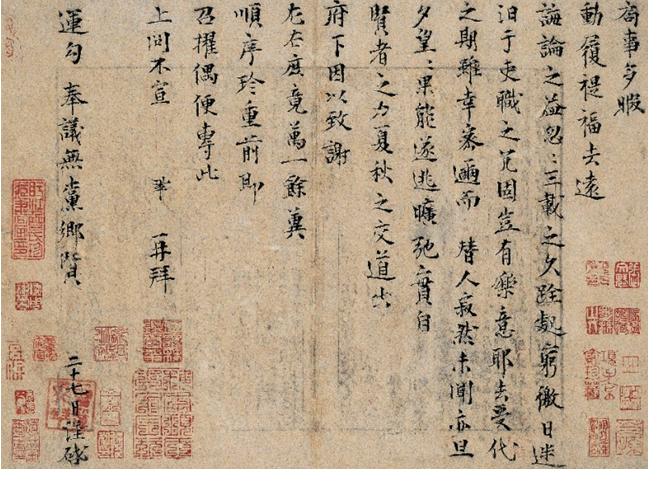 局事多暇
動履禔福去遠
誨論之益忽忽三載之久跧處窮徼日迷
汩于吏職之冗固豈有樂意耶去受代
之期雖幸密邇而替人寂然未聞亦旦
夕望望果能遂逃曠弛實自
賢者之力夏秋之交道出
府下因以致謝
左右庶竟萬一餘冀
順序珍重前即
召擢偶便專此
上問不宣 鞏再拜
運勾奉議無黨鄉賢 二十七日謹啟